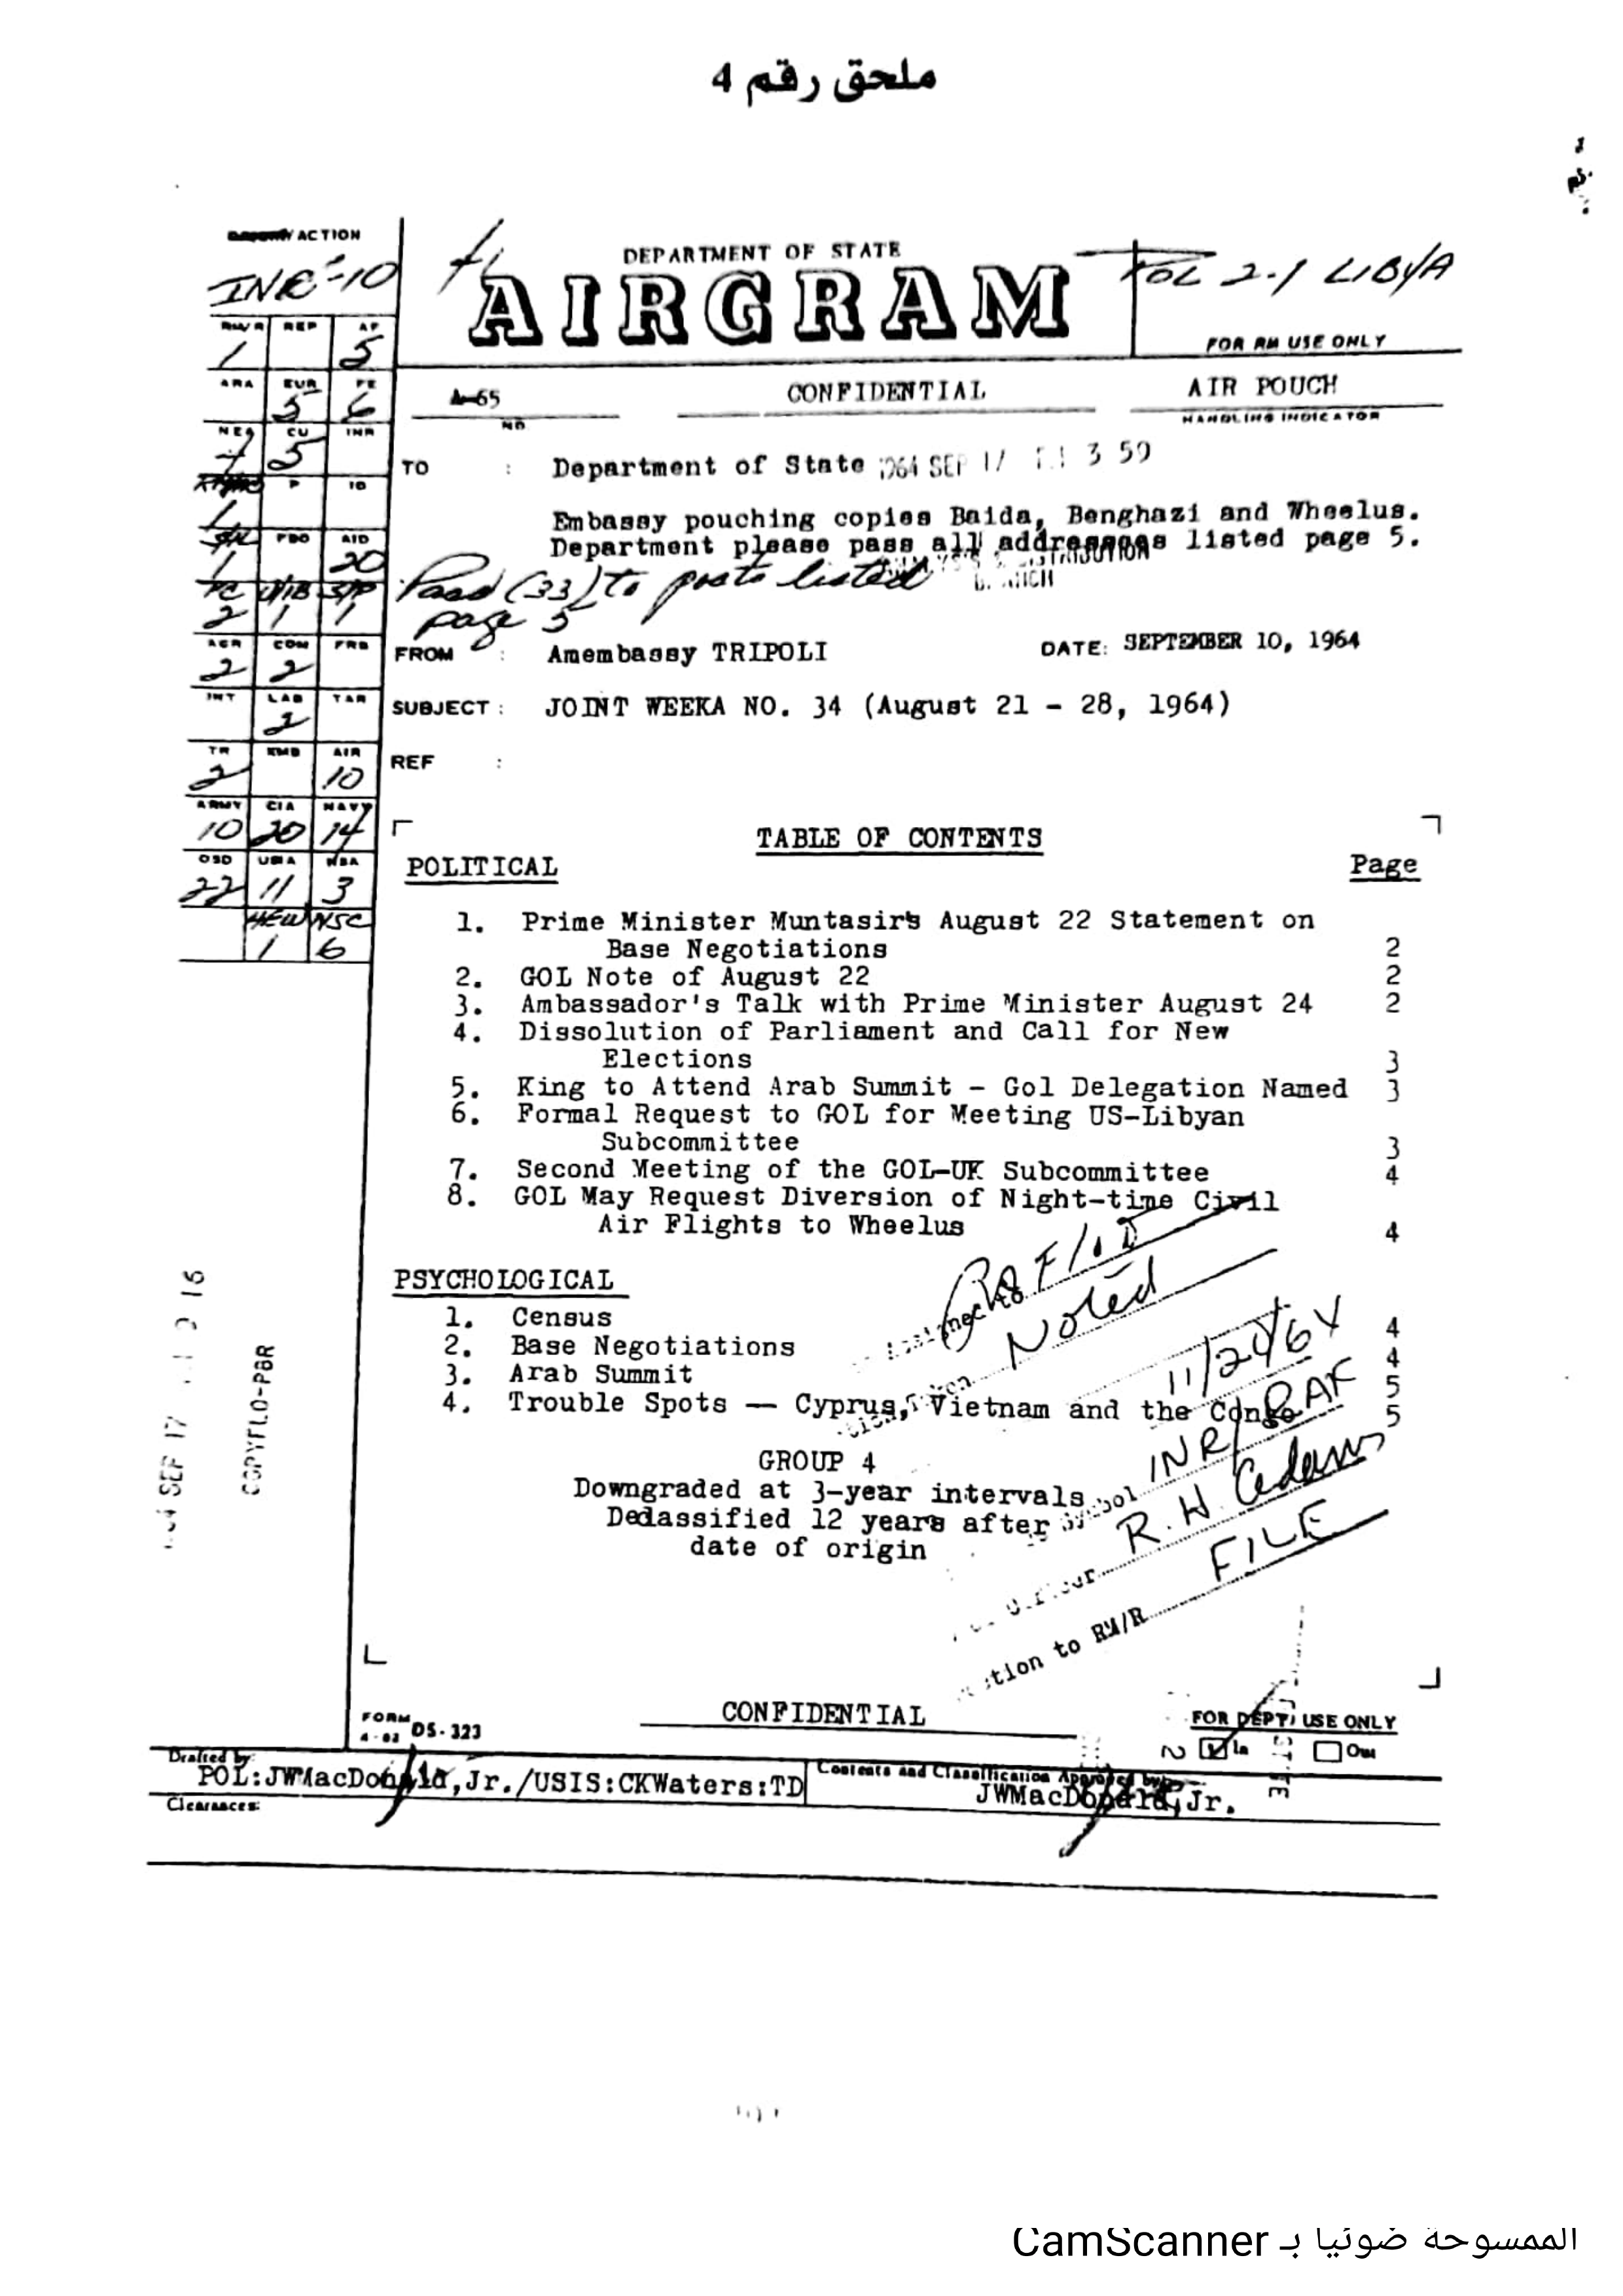 ملحق رقم 4
ACTION
INR-10
DEPARTMENT OF STATE
AIRGRAM
POL 2-1 LIBYA
FOR RM USE ONLY
RM/R REP AF
1 5
ARA EUR FE
5 6
NEA CU INR
7 5
P IO
1
FBO AID
1 20
2 1 1
AGR COM FRB
2 2
INT LAB TAR
2
TR XMB AIR
2 10
ARMY CIA NAVY
10 20 14
OSD USIA NSA
22 11 3
HEW NSC
1 6
A-65 CONFIDENTIAL AIR POUCH
NO. HANDLING INDICATOR
TO : Department of State 1964 SEP 17 3 59
Embassy pouching copies Baida, Benghazi and Wheelus.
Department please pass all addressees listed page 5.
Pass (33) to posts listed
page 5
FROM : Amembassy TRIPOLI DATE: SEPTEMBER 10, 1964
SUBJECT : JOINT WEEKA NO. 34 (August 21 - 28, 1964)
REF :
TABLE OF CONTENTS
POLITICAL Page
1. Prime Minister Muntasir's August 22 Statement on
Base Negotiations 2
2. GOL Note of August 22 2
3. Ambassador's Talk with Prime Minister August 24 2
4. Dissolution of Parliament and Call for New
Elections 3
5. King to Attend Arab Summit - Gol Delegation Named 3
6. Formal Request to GOL for Meeting US-Libyan
Subcommittee 3
7. Second Meeting of the GOL-UK Subcommittee 4
8. GOL May Request Diversion of Night-time Civil
Air Flights to Wheelus 4
PSYCHOLOGICAL
1. Census 4
2. Base Negotiations 4
3. Arab Summit 5
4. Trouble Spots — Cyprus, Vietnam and the Congo 5
Noted
11/24/64
INR/RAF
R. H. Adams
FILE
tion to RM/R
GROUP 4
Downgraded at 3-year intervals
Declassified 12 years after
date of origin
SEP 17
COPYFLO-PBR
CONFIDENTIAL
FORM DS-323
FOR DEPT. USE ONLY
In Out
Drafted by:
POL:JWMacDonald,Jr./USIS:CKWaters:TD
Contents and Classification Approved by:
JWMacDonald,Jr.
Clearances:
الممسوحة ضوئيا بـ CamScanner